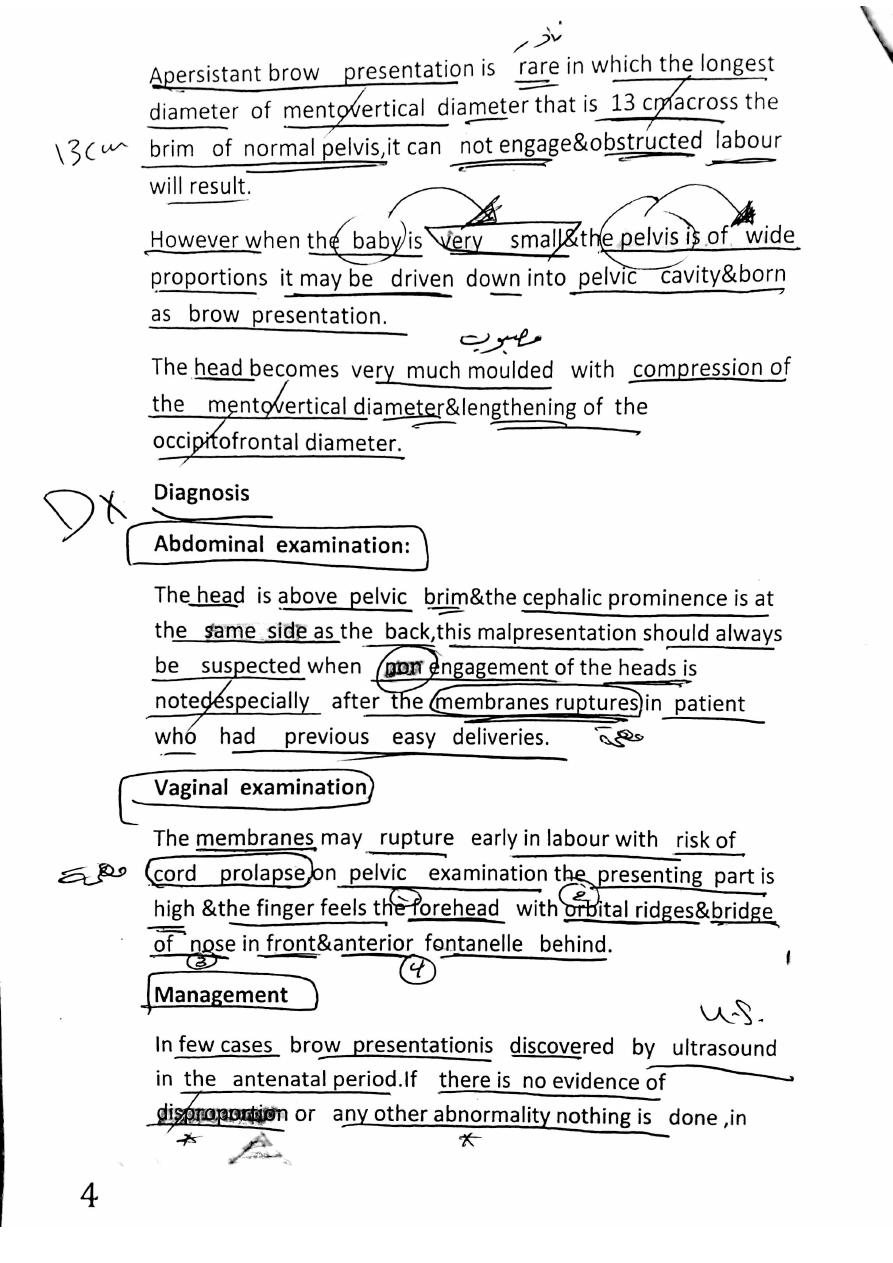 نادر
Apersistant brow presentation is rare in which the longest
diameter of mentovertical diameter that is 13 cmacross the
13cm
brim of normal pelvis,it can not engage&obstructed labour
will result.
However when the baby is very small&the pelvis is of wide
proportions it may be driven down into pelvic cavity&born
as brow presentation.
مصبوب
The head becomes very much moulded with compression of
the mentovertical diameter&lengthening of the
occipitofrontal diameter.
Diagnosis
DX
Abdominal examination:
The head is above pelvic brim&the cephalic prominence is at
the same side as the back,this malpresentation should always
be suspected when non engagement of the heads is
notedespecially after the membranes ruptures in patient
who had previous easy deliveries.
Vaginal examination
The membranes may rupture early in labour with risk of
cord prolapse,on pelvic examination the presenting part is
high &the finger feels the forehead with orbital ridges&bridge
1 2
of nose in front&anterior fontanelle behind.
3 4
Management
U.S.
In few cases brow presentationis discovered by ultrasound
in the antenatal period.If there is no evidence of
disproportion or any other abnormality nothing is done ,in
4